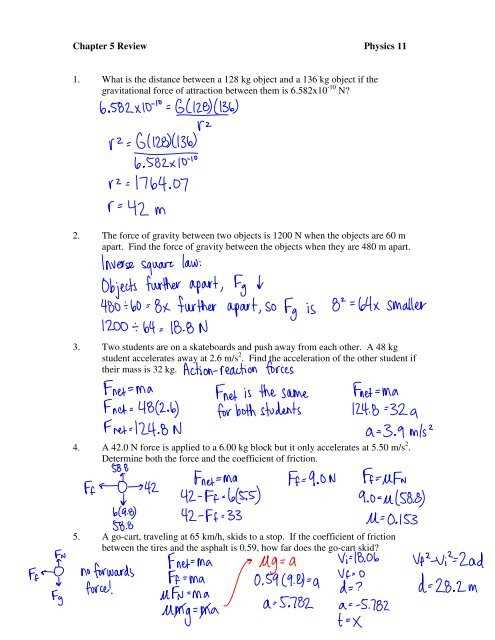 Chapter 5 Review Physics 11
1. What is the distance between a 128 kg object and a 136 kg object if the
gravitational force of attraction between them is 6.582x10⁻¹⁰ N?
6.582x10⁻¹⁰ = G(128)(136)
r²
r² = G(128)(136)
6.582x10⁻¹⁰
r² = 1764.07
r = 42 m
2. The force of gravity between two objects is 1200 N when the objects are 60 m
apart. Find the force of gravity between the objects when they are 480 m apart.
Inverse square law:
Objects further apart, Fg ↓
480 ÷ 60 = 8x further apart, so Fg is 8² = 64x smaller
1200 ÷ 64 = 18.8 N
3. Two students are on a skateboards and push away from each other. A 48 kg
student accelerates away at 2.6 m/s². Find the acceleration of the other student if
their mass is 32 kg. Action-reaction forces
Fnet = ma Fnet is the same Fnet = ma
Fnet = 48(2.6) for both students 124.8 = 32a
Fnet = 124.8 N a = 3.9 m/s²
4. A 42.0 N force is applied to a 6.00 kg block but it only accelerates at 5.50 m/s².
Determine both the force and the coefficient of friction.
58.8 Fnet = ma Ff = 9.0 N Ff = μFN
Ff 42 42 - Ff = 6(5.5) 9.0 = μ(58.8)
6(9.8) 42 - Ff = 33 μ = 0.153
58.8
5. A go-cart, traveling at 65 km/h, skids to a stop. If the coefficient of friction
between the tires and the asphalt is 0.59, how far does the go-cart skid?
FN Fnet = ma μg = a Vi = 18.06 Vf² - Vi² = 2ad
Ff no forwards Ff = ma 0.59(9.8) = a Vf = 0 d = 28.2 m
force! μFN = ma d = ?
Fg μmg = ma a = 5.782 a = -5.782
t = X